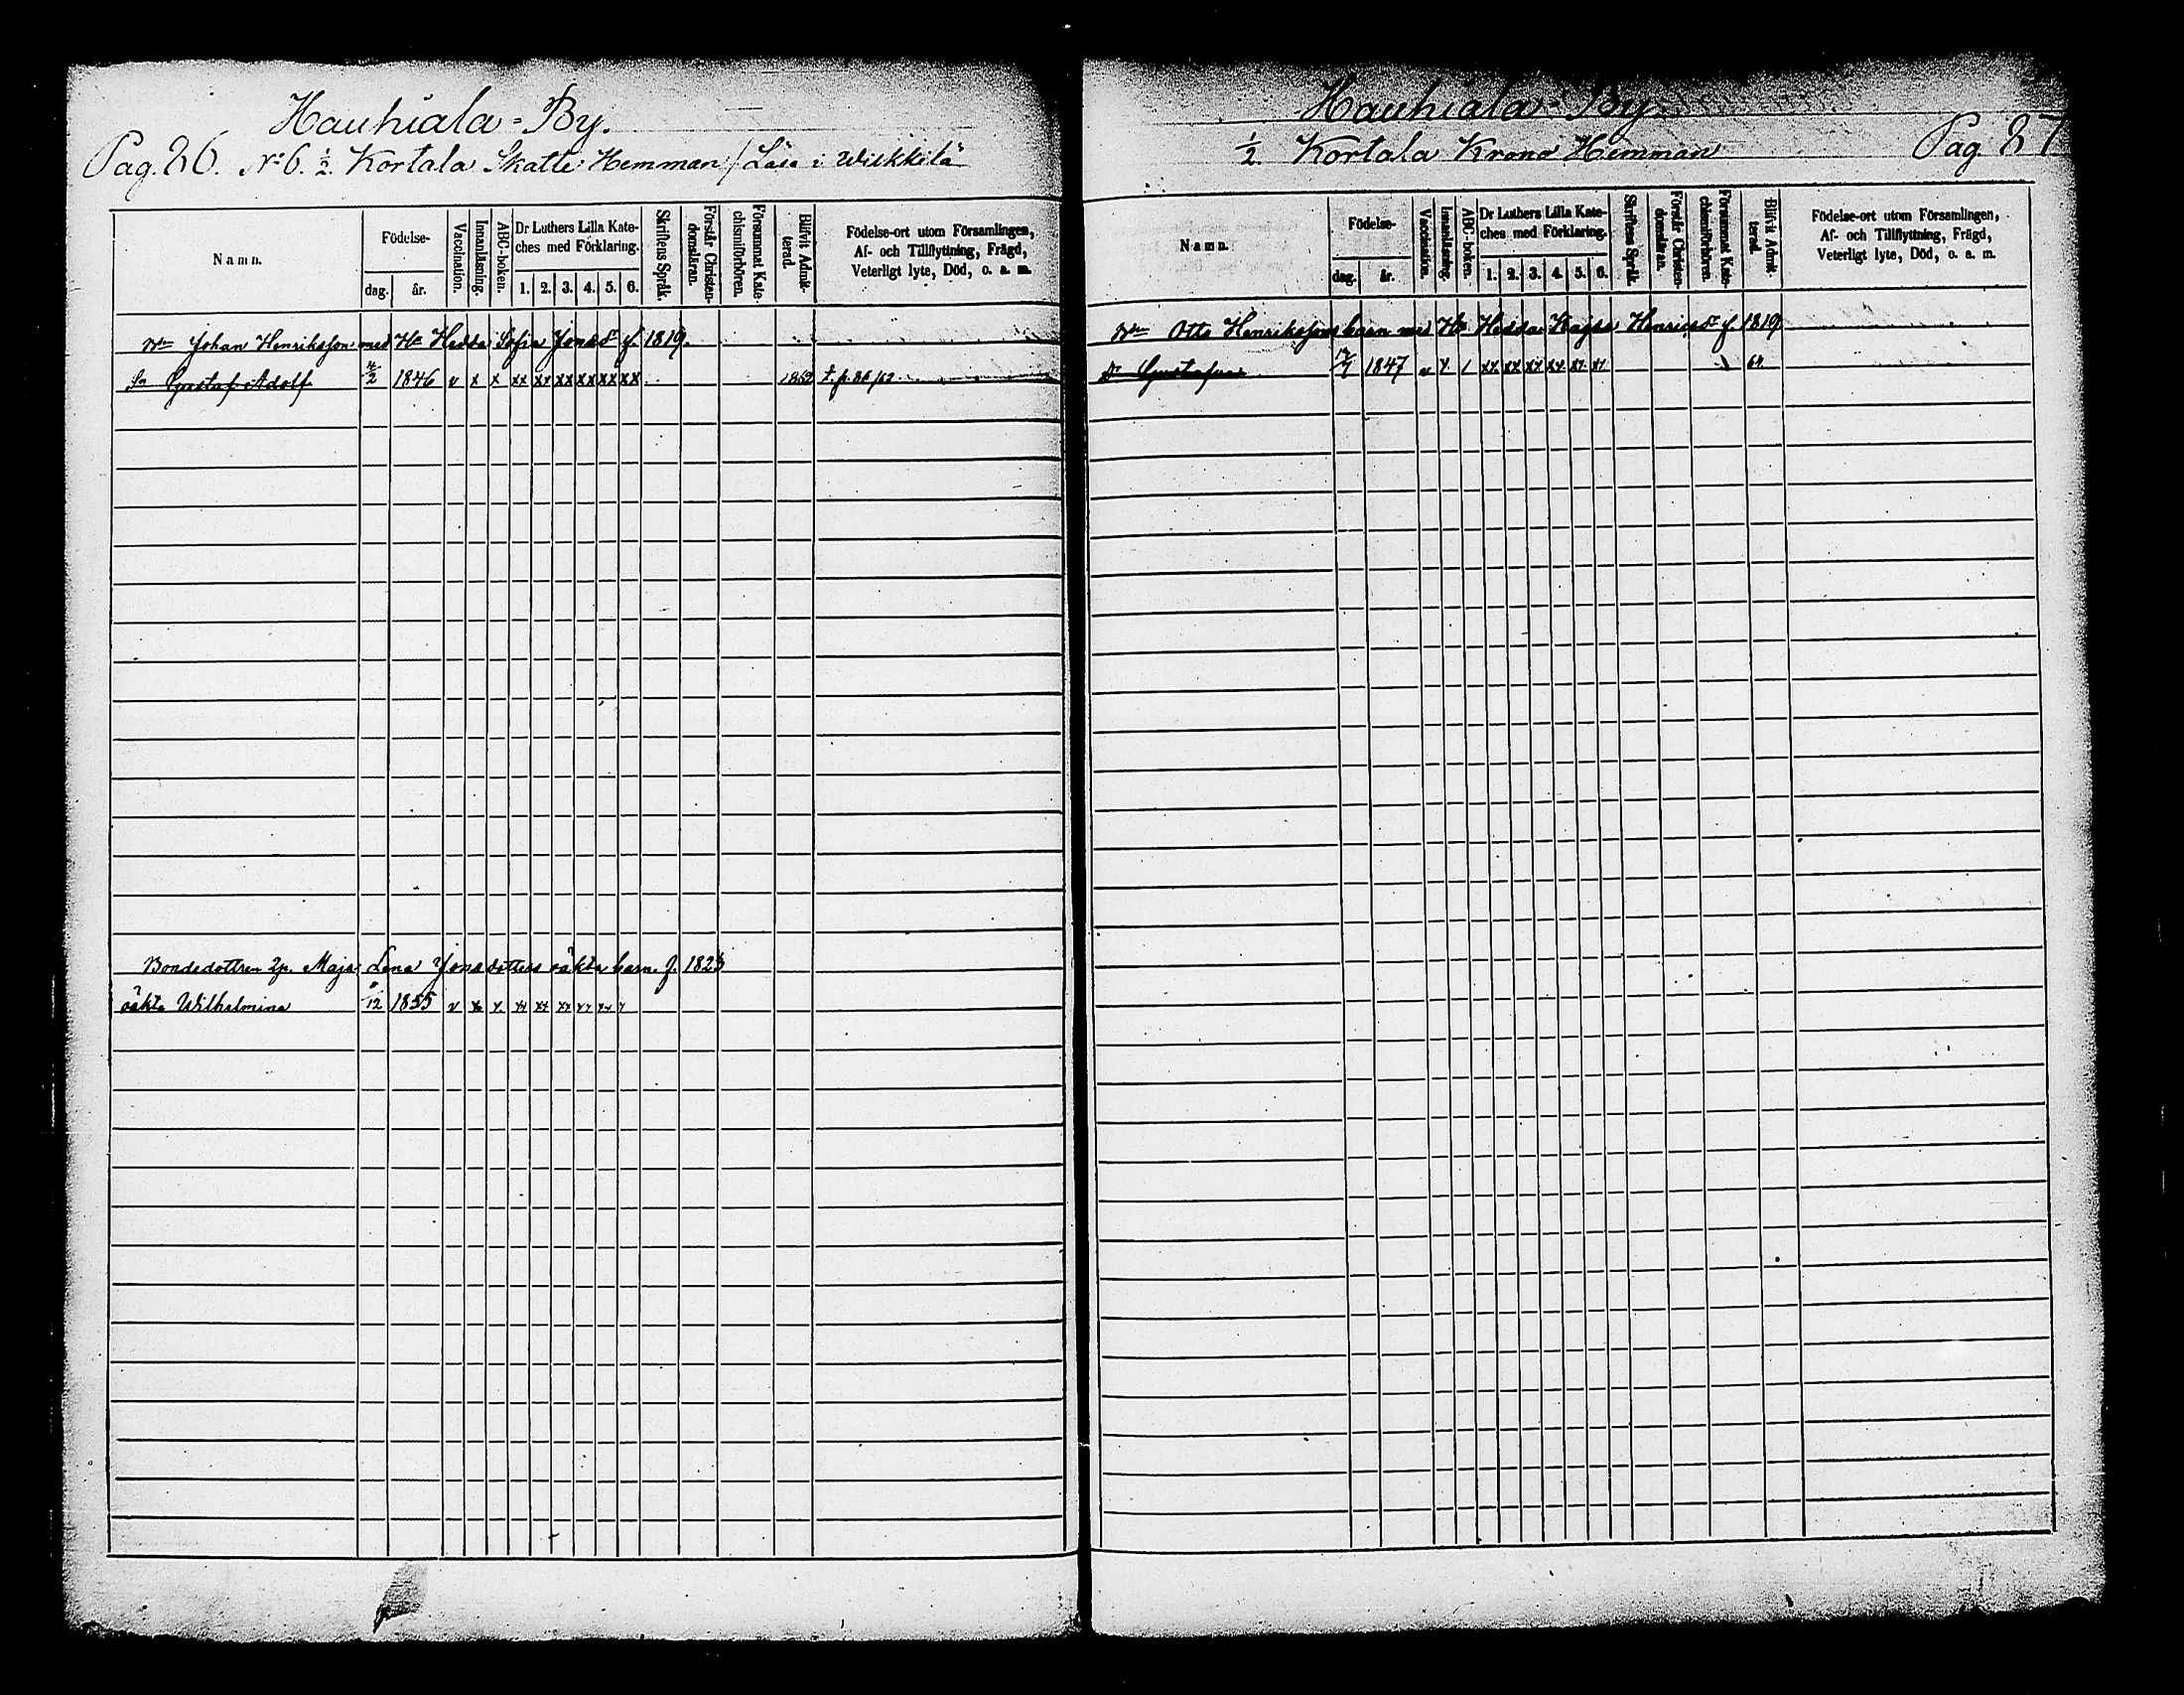 Hauhiala=By.
Pag. 86. No 6. 1/2. Kortala Skatte Hemman / Läsa i Wilkkilä
Namn. Födelse- dag. år. Vaccination. Innanläsning. ABC-boken. Dr Luthers Lilla Kateches med Förklaring. 1. 2. 3. 4. 5. 6. Skriftens Språk. Förstår Christendomsläran. Försummat Katechismiförhören. Blifvit Admitterad. Födelse-ort utom Församlingen, Af- och Tillflyttning, Frägd, Veterligt lyte, Död, o. a. m.
Bn Johan Henriksson med Hu Hedda Sofia Jonas Dr f. 1819.
Sn Gustaf Adolf 4/2 1846 v x x xx xx xx xx xx xx 1862
Bondedottren 2p. Maja Lena Jonadotters oäkta barn f. 1823
oäkta Wilhelmina /12 1855 v
Hauhiala=By
1/2. Kortala Krono Hemman Pag. 87
Namn. Födelse- dag. år. Vaccination. Innanläsning. ABC-boken. Dr Luthers Lilla Kateches med Förklaring. 1. 2. 3. 4. 5. 6. Skriftens Språk. Förstår Christendomsläran. Försummat Katechismiförhören. Blifvit Admitterad. Födelse-ort utom Församlingen, Af- och Tillflyttning, Frägd, Veterligt lyte, Död, o. a. m.
Bn Otto Henrikssons barn med Hu Hedda Kajsa Henrics Dr f 1819
Dr Gustafva 1847 64